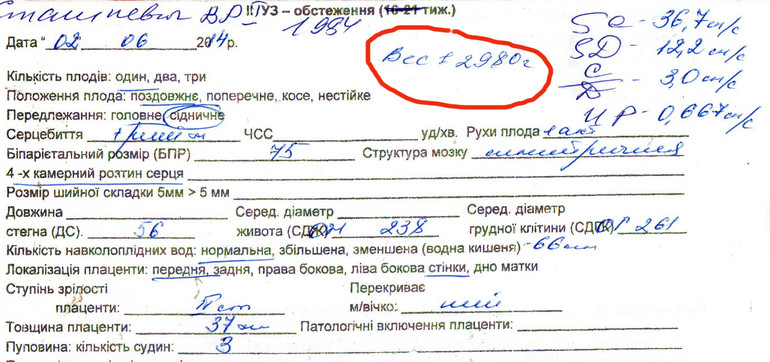 II УЗ – обстеження (16-21 тиж.)
1984
Дата "02" 06 2014р.
Вес ± 2980г
SD - 36,7 см/с
SD - 12,2 см/с
С/Д - 3,0 см/с
ИР - 0,667 см/с
Кількість плодів: один, два, три
Положення плода: поздовжнє, поперечне, косе, нестійке
Передлежання: головне, сідничне
Серцебиття ЧСС уд/хв. Рухи плода
Біпарієтальний розмір (БПР) 75 Структура мозку
4 -х камерний розтин серця
Розмір шийної складки 5мм > 5 мм
Довжина Серед. діаметр Серед. діаметр
стегна (ДС). 56 живота (СДЖ) 238 грудної клітини (СДГК) 261
Кількість навколоплідних вод: нормальна, збільшена, зменшена (водна кишеня) - 66мм
Локалізація плаценти: передня, задня, права бокова, ліва бокова стінки, дно матки
Ступінь зрілості Перекриває
плаценти: II ст м/вічко:
Товщина плаценти: 37 мм Патологічні включення плаценти:
Пуповина: кількість судин: 3